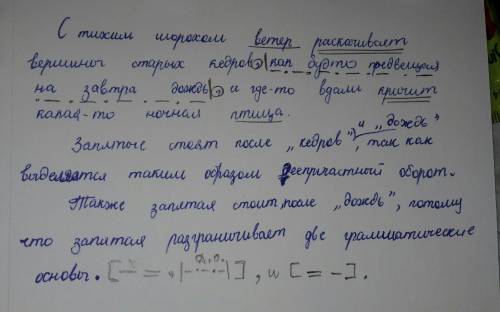 С тихим шорохом ветер раскачивает
вершины старых кедров, как будто предвещая
на завтра дождь, и где-то вдали кричит
какая-то ночная птица.
Запятые стоят после „кедров" и „дождь", так как
выделяется таким образом деепричастный оборот.
Также запятая стоит после „дождь", потому
что запятая разграничивает две грамматические
основы. [— =, |д.о.|], и [= —].